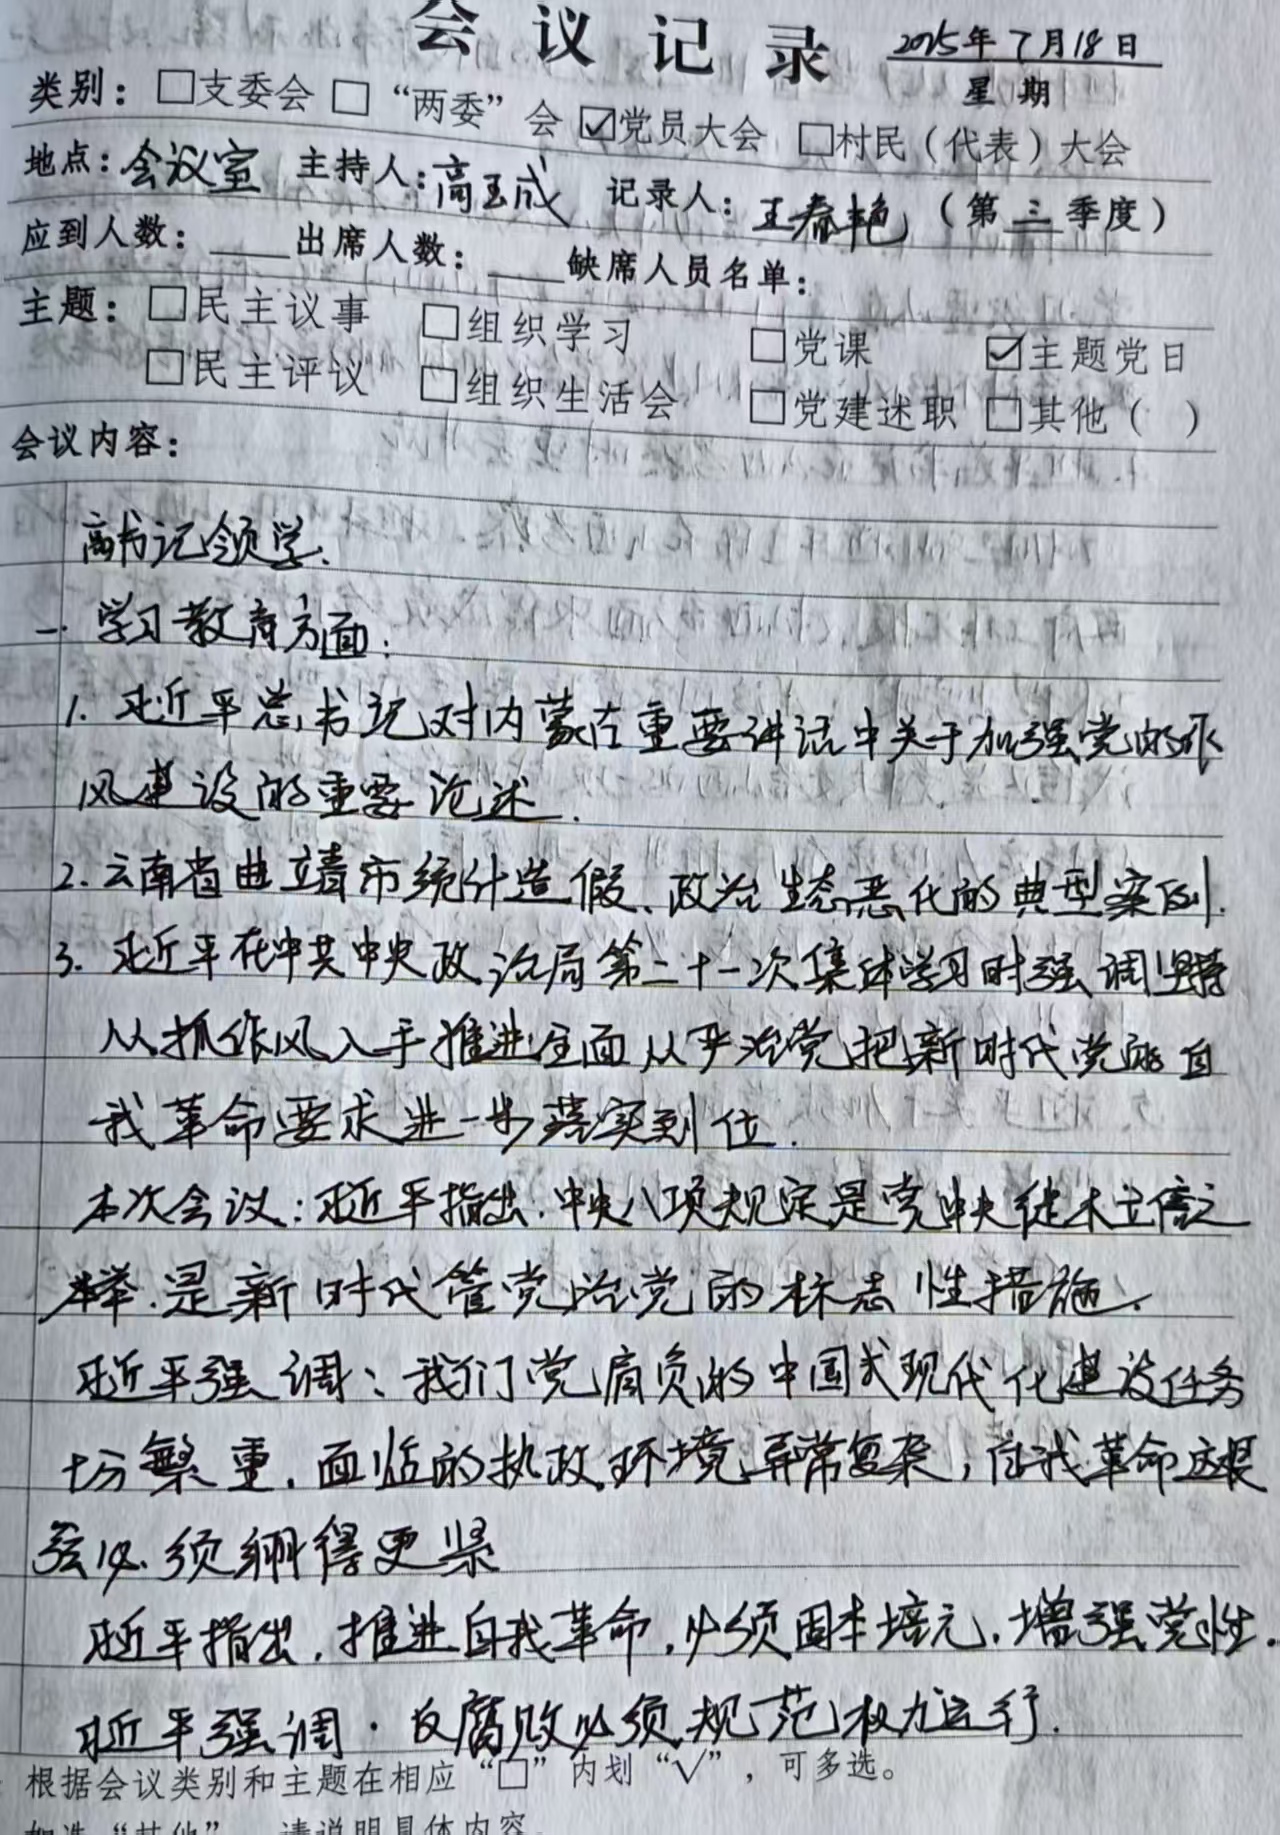 会议记录 2025年7月18日
星期
类别：□支委会 □“两委”会 ☑党员大会 □村民（代表）大会
地点：会议室 主持人：高玉成 记录人：王春艳（第三季度）
应到人数：____出席人数：____缺席人员名单：
主题：□民主议事 □组织学习 □党课 ☑主题党日
□民主评议 □组织生活会 □党建述职 □其他（ ）
会议内容：
高书记领学.
一. 学习教育方面：
1. 习近平总书记对内蒙古重要讲话中关于加强党的作
风建设的重要论述.
2. 云南省曲靖市统计造假、政治生态恶化的典型案例.
3. 习近平在中共中央政治局第二十一次集体学习时强调坚持
从抓作风入手推进全面从严治党把新时代党的自
我革命要求进一步落实到位.
本次会议：习近平指出.中央八项规定是党中央徙木立信之
举.是新时代管党治党的标志性措施.
习近平强调：我们党肩负的中国式现代化建设任务
十分繁重.面临的执政环境异常复杂，自我革命这根
弦必须绷得更紧
习近平指出.推进自我革命.必须固本培元.增强党性.
习近平强调.反腐败必须规范权力运行.
根据会议类别和主题在相应“□”内划“√”，可多选。
如选“其他”，请说明具体内容